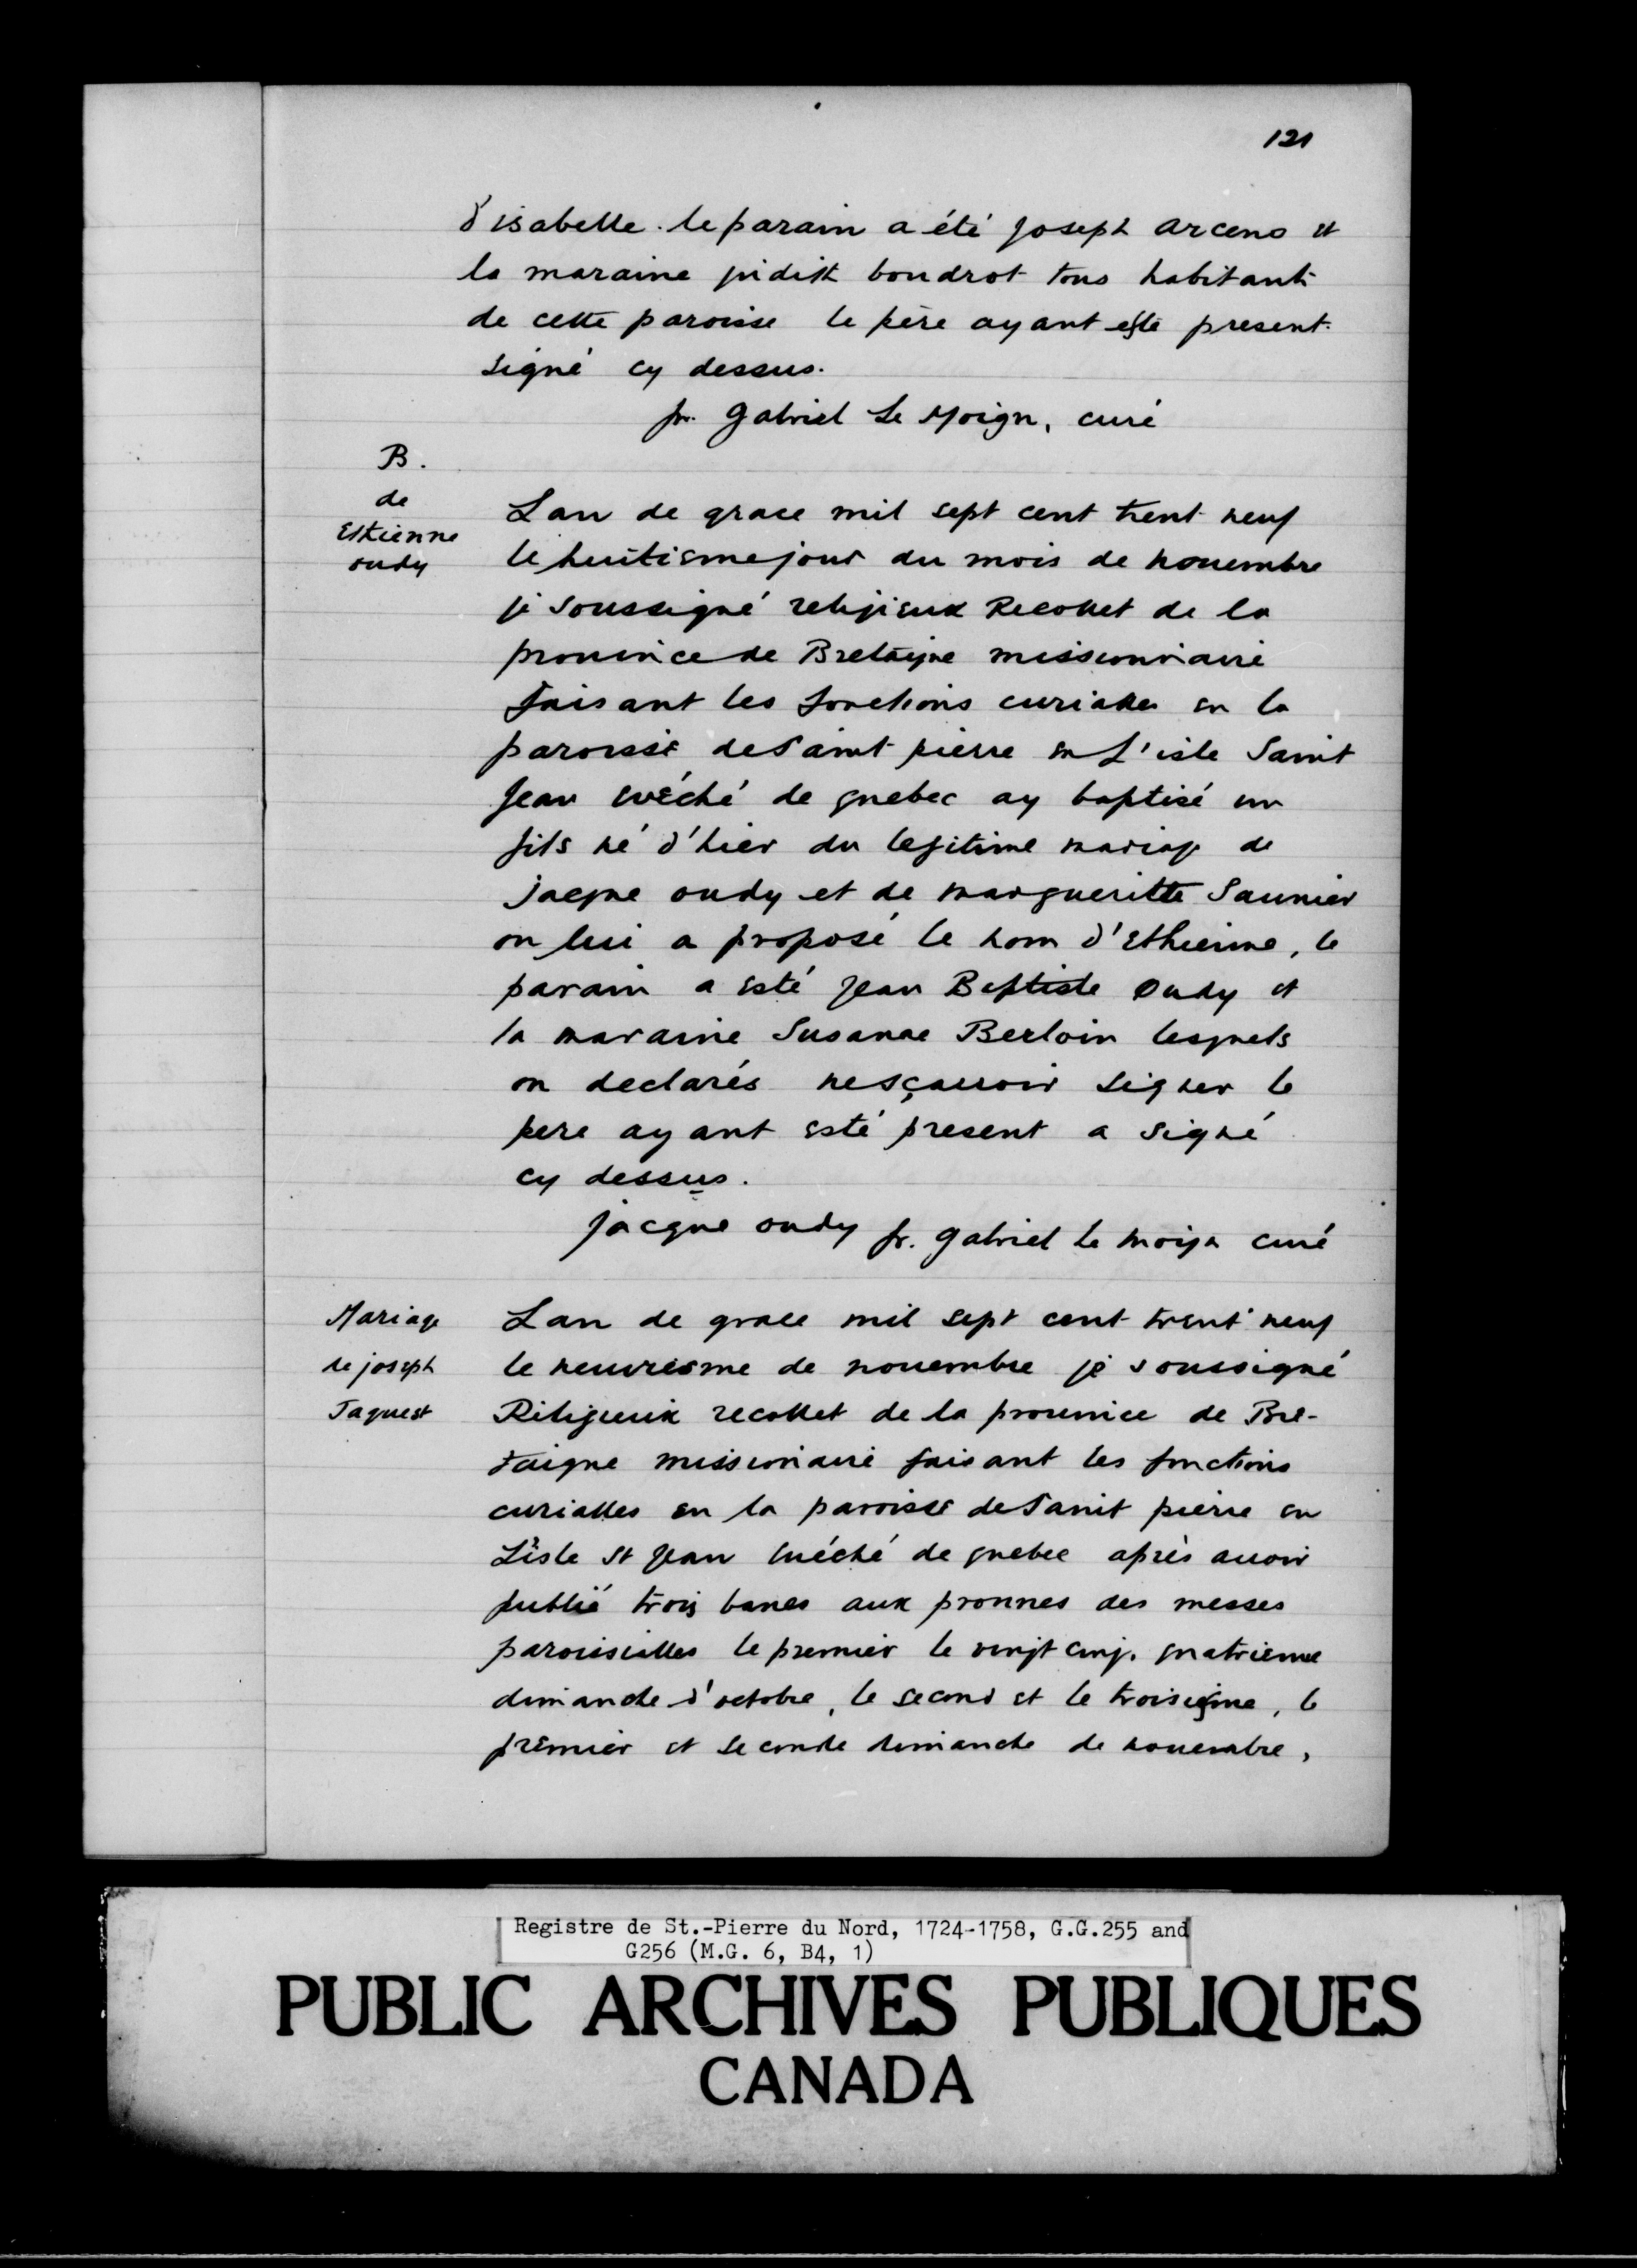 121
d'isabelle. le parain a été joseph arceno et
la maraine judith boudrot tous habitants
de cette paroisse le père ayant esté present
signé cy dessus.
fr. gabriel Le Moign, curé
B.
de
Estienne
oudy
Lan de grace mil sept cent trent neuf
le huitisme jour du mois de nouembre
je soussigné religieux Recollet de la
prouince de Bretaigne missionnaire
faisant les fonctions curialles en la
paroisse de Saint pierre en L'isle Saint
Jean evêché de quebec ay baptisé un
fils né d'hier du legitime mariage de
jacque oudy et de margueritte Saunier
on lui a proposé le nom d'Ethienne, le
parain a esté jean Baptiste Oudy et
la maraine Susanne Berloin lesquels
on declarés nesçauoir signer le
pere ayant esté present a signé
cy dessus.
jacque oudy fr. gabriel le moign curé
Mariage
de joseph
Jaquest
Lan de grace mil sept cent trent neuf
le neuviesme de nouembre je soussigné
Religieuix recollet de la prouince de Bre-
taigne missionaire faisant les fonctions
curialles en la paroisse de Saint pierre en
L'isle St Jean évêché de quebec après auoir
publié trois banes aux pronnes des messes
paroissialles le premier le vingt cinq. quatrieme
dimanche d'octobre, le second et le troisiesme, le
premier et seconde dimanche de nouembre,
Registre de St.-Pierre du Nord, 1724-1758, G.G.255 and
G256 (M.G. 6, B4, 1)
PUBLIC ARCHIVES PUBLIQUES
CANADA